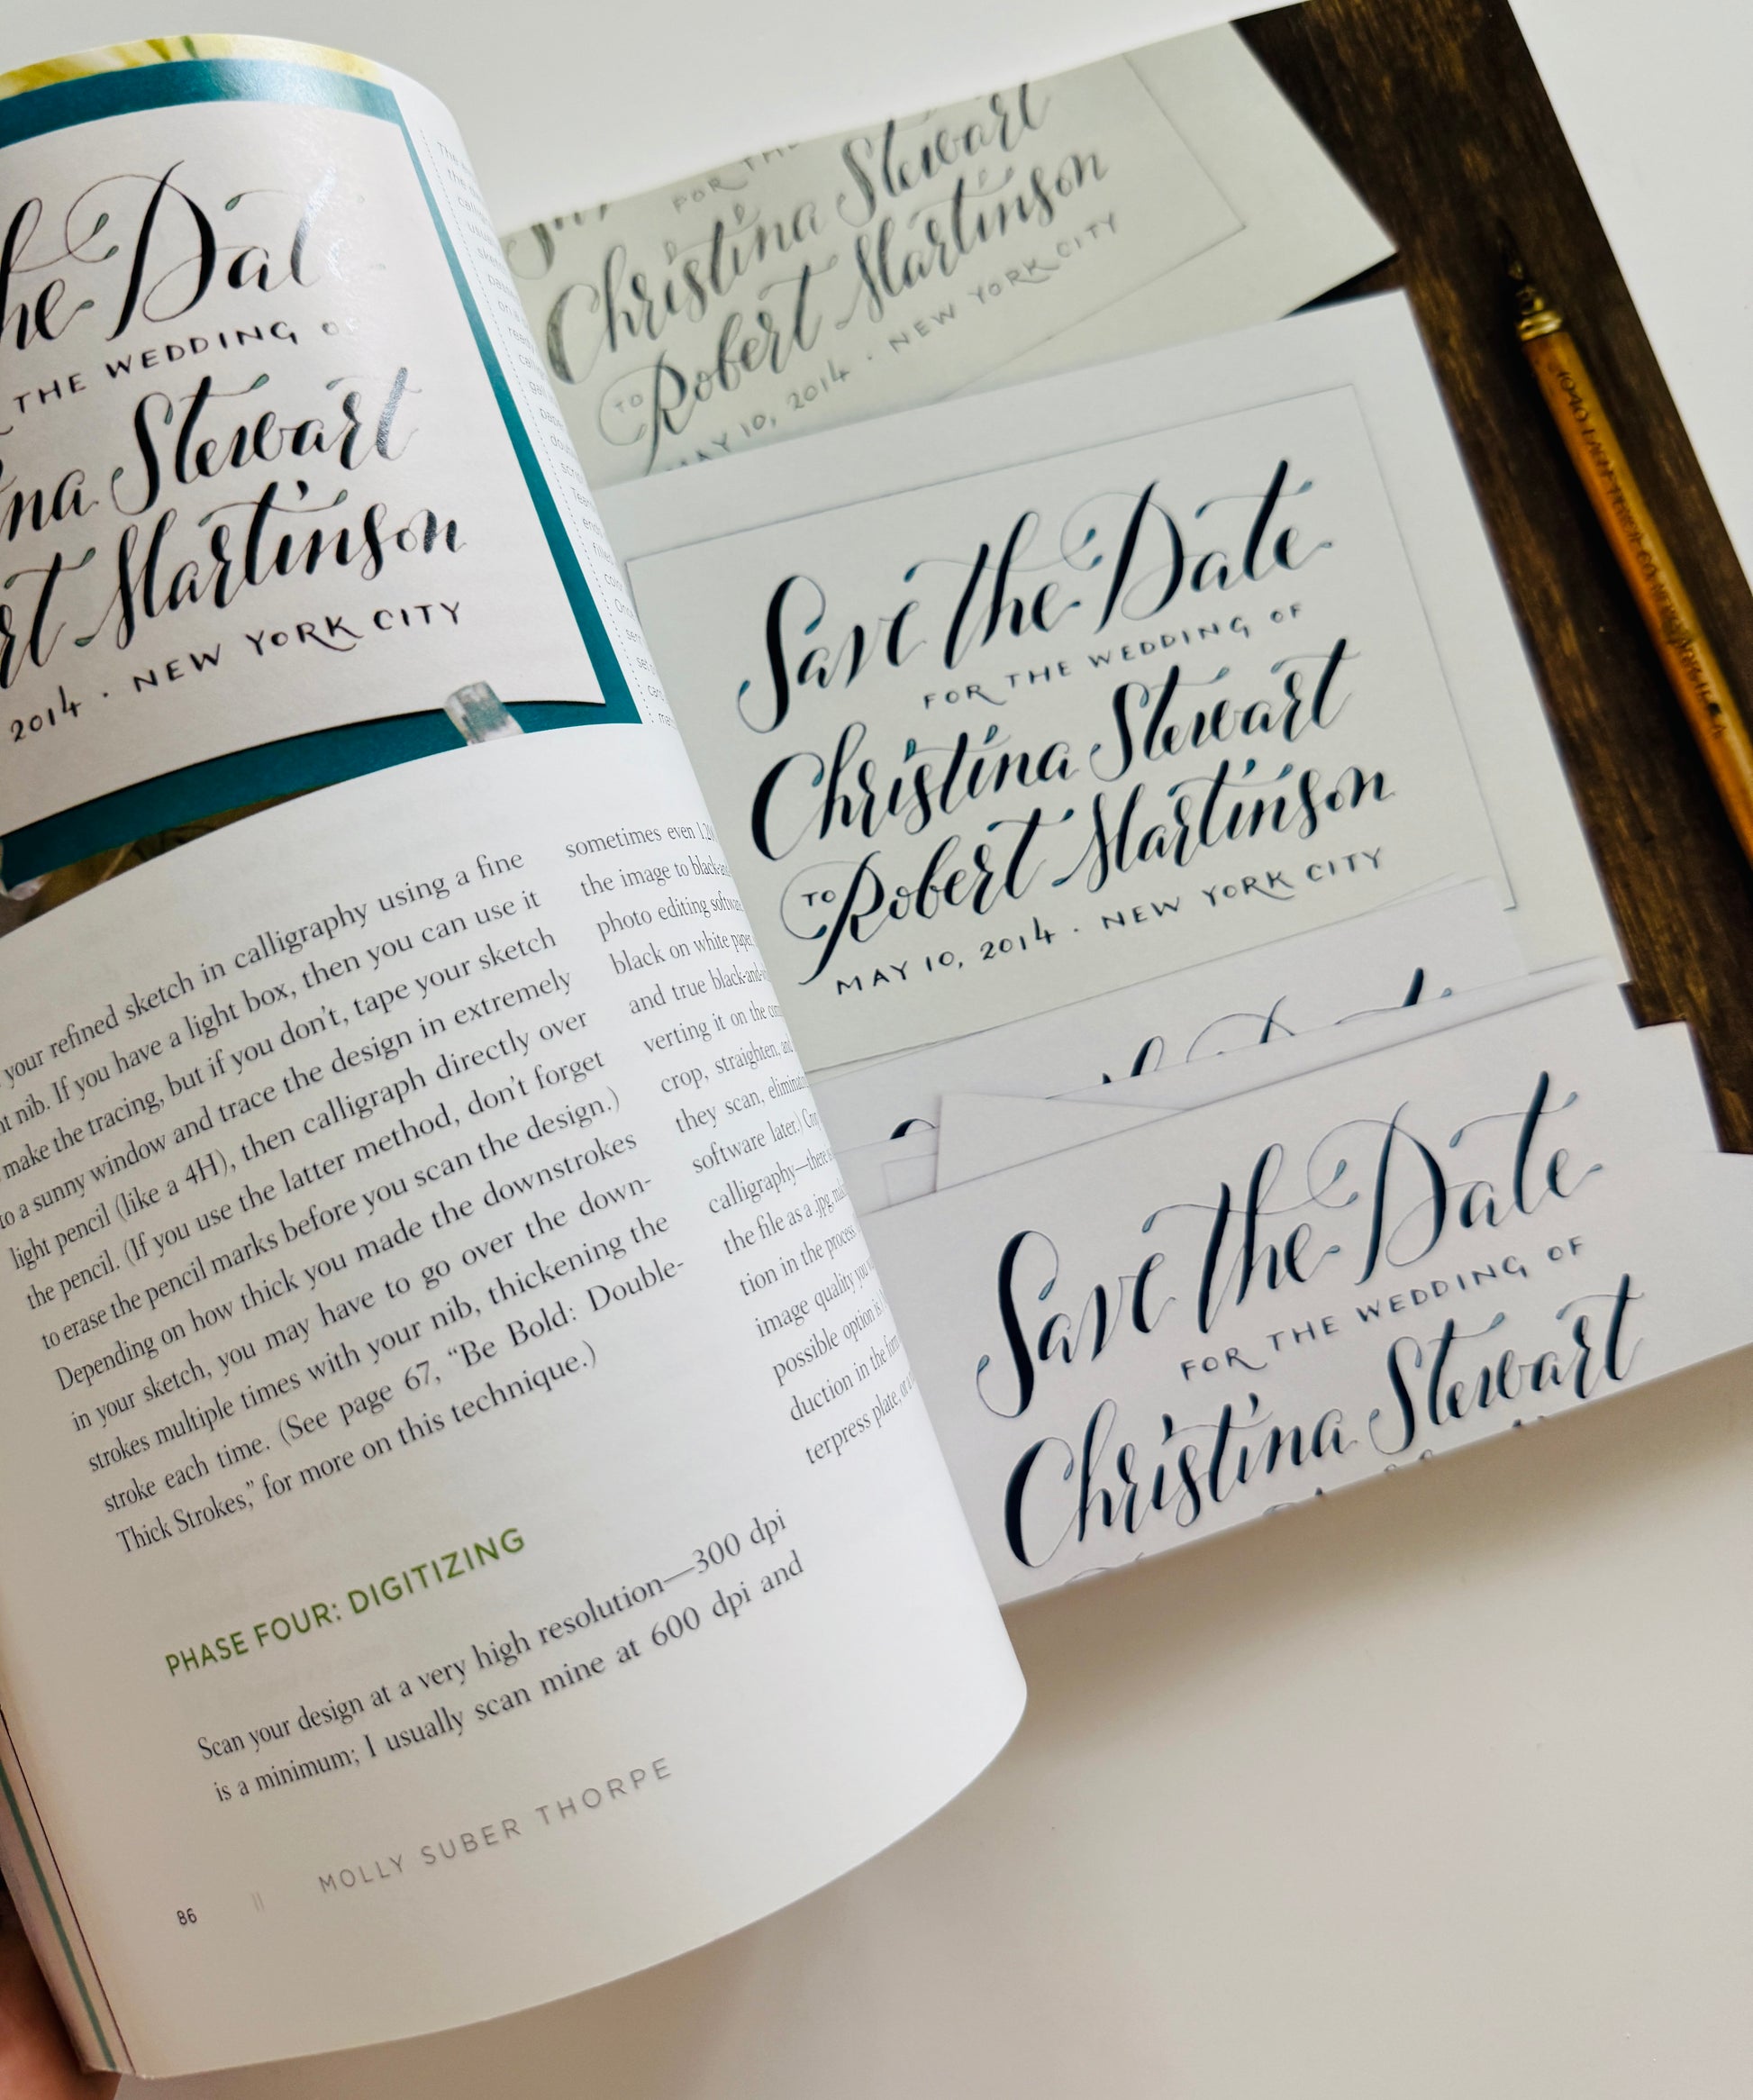 he Dat
THE WEDDING O
na Stewart
rt Martinson
2014 · NEW YORK CITY
your refined sketch in calligraphy using a fine
nt nib. If you have a light box, then you can use it
make the tracing, but if you don't, tape your sketch
to a sunny window and trace the design in extremely
light pencil (like a 4H), then calligraph directly over
the pencil. (If you use the latter method, don't forget
to erase the pencil marks before you scan the design.)
Depending on how thick you made the downstrokes
in your sketch, you may have to go over the down-
strokes multiple times with your nib, thickening the
stroke each time. (See page 67, “Be Bold: Double-
Thick Strokes,” for more on this technique.)
PHASE FOUR: DIGITIZING
Scan your design at a very high resolution—300 dpi
is a minimum; I usually scan mine at 600 dpi and
sometimes even 1,20
the image to black-an
photo editing softwar
black on white paper,
and true black-and-
verting it on the com
crop, straighten, and
they scan, eliminat
software later.)
calligraphy—there
the file as a .jpg,
tion in the process.
image quality you
possible option is
duction in the form
terpress plate, or
86 || MOLLY SUBER THORPE
FOR THE
Christina Stewart
TO Robert Martinson
MAY 10, 2014 · NEW YORK CITY
Save the Date
FOR THE WEDDING OF
Christina Stewart
TO Robert Martinson
MAY 10, 2014 · NEW YORK CITY
Save the Date
FOR THE WEDDING OF
Christina Stewart